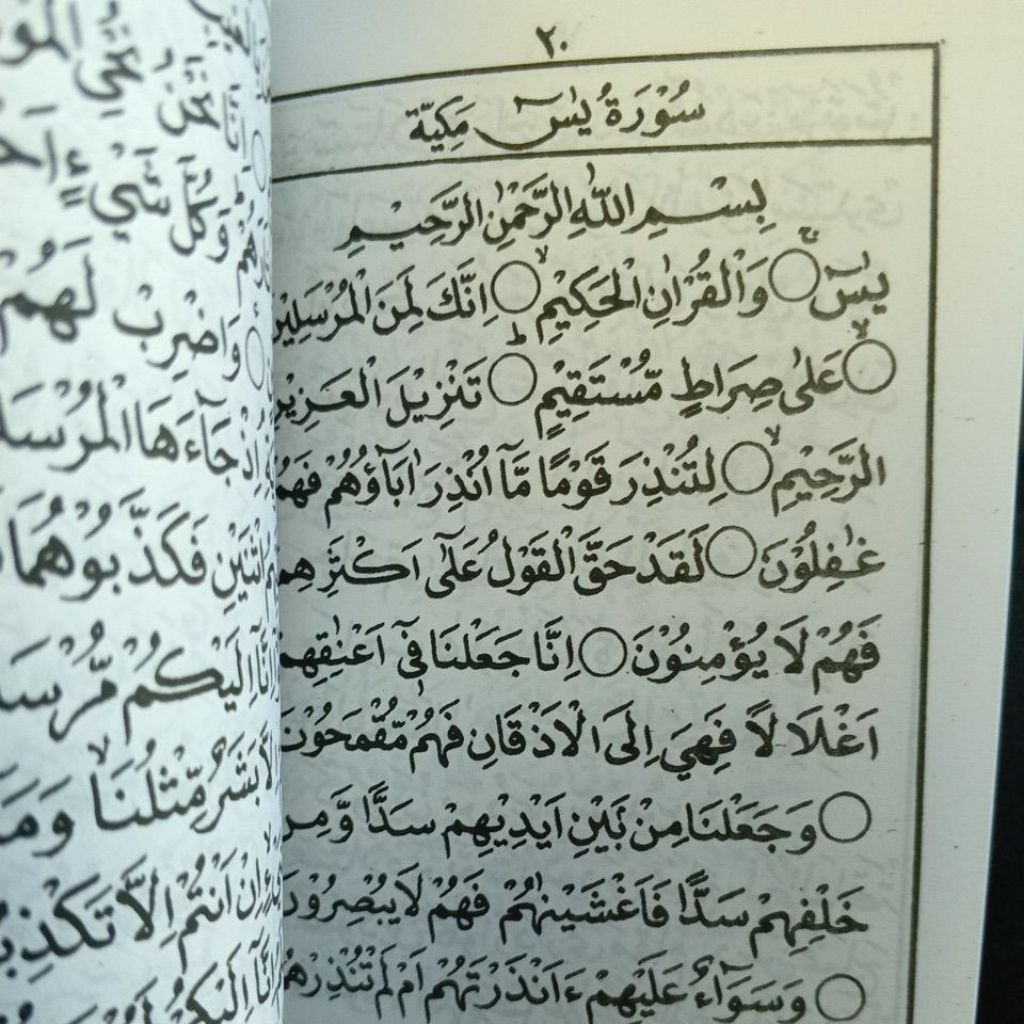 ٢٠
سُوْرَةُ يٰسۤ مَكِيَّة
بِسْمِ اللّٰهِ الرَّحْمٰنِ الرَّحِيْمِ
يٰسۤ ۝ وَالْقُرْاٰنِ الْحَكِيْمِ ۝ اِنَّكَ لَمِنَ الْمُرْسَلِيْنَ
۝ عَلٰى صِرَاطٍ مُّسْتَقِيْمٍ ۝ تَنْزِيْلَ الْعَزِيْزِ
الرَّحِيْمِ ۝ لِتُنْذِرَ قَوْمًا مَّآ اُنْذِرَ اٰبَآؤُهُمْ فَهُمْ
غٰفِلُوْنَ ۝ لَقَدْ حَقَّ الْقَوْلُ عَلٰٓى اَكْثَرِهِمْ
فَهُمْ لَا يُؤْمِنُوْنَ ۝ اِنَّا جَعَلْنَا فِيْٓ اَعْنٰقِهِمْ
اَغْلَالًا فَهِيَ اِلَى الْاَذْقَانِ فَهُمْ مُّقْمَحُوْنَ
۝ وَجَعَلْنَا مِنْ بَيْنِ اَيْدِيْهِمْ سَدًّا وَّمِنْ
خَلْفِهِمْ سَدًّا فَاَغْشَيْنٰهُمْ فَهُمْ لَا يُبْصِرُوْنَ
۝ وَسَوَآءٌ عَلَيْهِمْ ءَاَنْذَرْتَهُمْ اَمْ لَمْ تُنْذِرْهُمْ
اِنَّا نَحْنُ نُحْيِ الْمَوْ
وَكُلَّ شَيْءٍ اَحْ
وَاضْرِبْ لَهُمْ
اِذْ جَآءَهَا الْمُرْسَلُ
اثْنَيْنِ فَكَذَّبُوْهُمَا فَ
اِنَّآ اِلَيْكُمْ مُّرْسَلُ
اِلَّا بَشَرٌ مِّثْلُنَا وَمَآ
اِنْ اَنْتُمْ اِلَّا تَكْذِبُ
اِنَّآ اِلَيْكُمْ